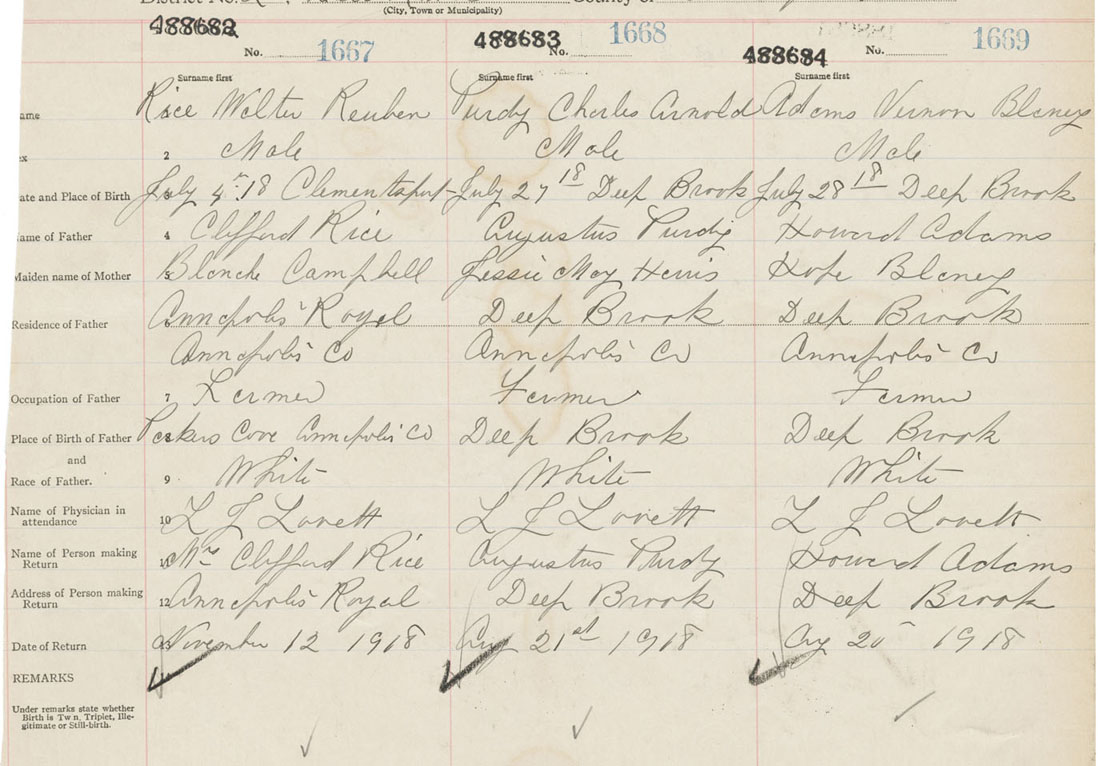 District No.
(City, Town or Municipality)
County of
488682 No. 1667 488683 No. 1668 488684 No. 1669
Surname first Surname first Surname first
ame Rice Walter Reuben Purdy Charles Arnold Adams Vernon Blaney
ex 2 Male Male Male
ate and Place of Birth 3 July 4th 18 Clementsport July 27 18 Deep Brook July 28 18 Deep Brook
ame of Father 4 Clifford Rice Augustus Purdy Howard Adams
Maiden name of Mother 5 Blanche Campbell Jessie May Harris Hope Blaney
Residence of Father Annapolis Royal Deep Brook Deep Brook
Annapolis Co Annapolis Co Annapolis Co
Occupation of Father 7 Farmer Farmer Farmer
Place of Birth of Father 8 Parkers Cove Annapolis Co Deep Brook Deep Brook
and
Race of Father. 9 White White White
Name of Physician in
attendance 10 L J Lovett L J Lovett L J Lovett
Name of Person making
Return 11 Mrs Clifford Rice Augustus Purdy Howard Adams
Address of Person making
Return 12 Annapolis Royal Deep Brook Deep Brook
Date of Return 13 November 12 1918 Aug 21st 1918 Aug 20 1918
REMARKS
Under remarks state whether
Birth is Twin, Triplet, Ille-
gitimate or Still-birth.